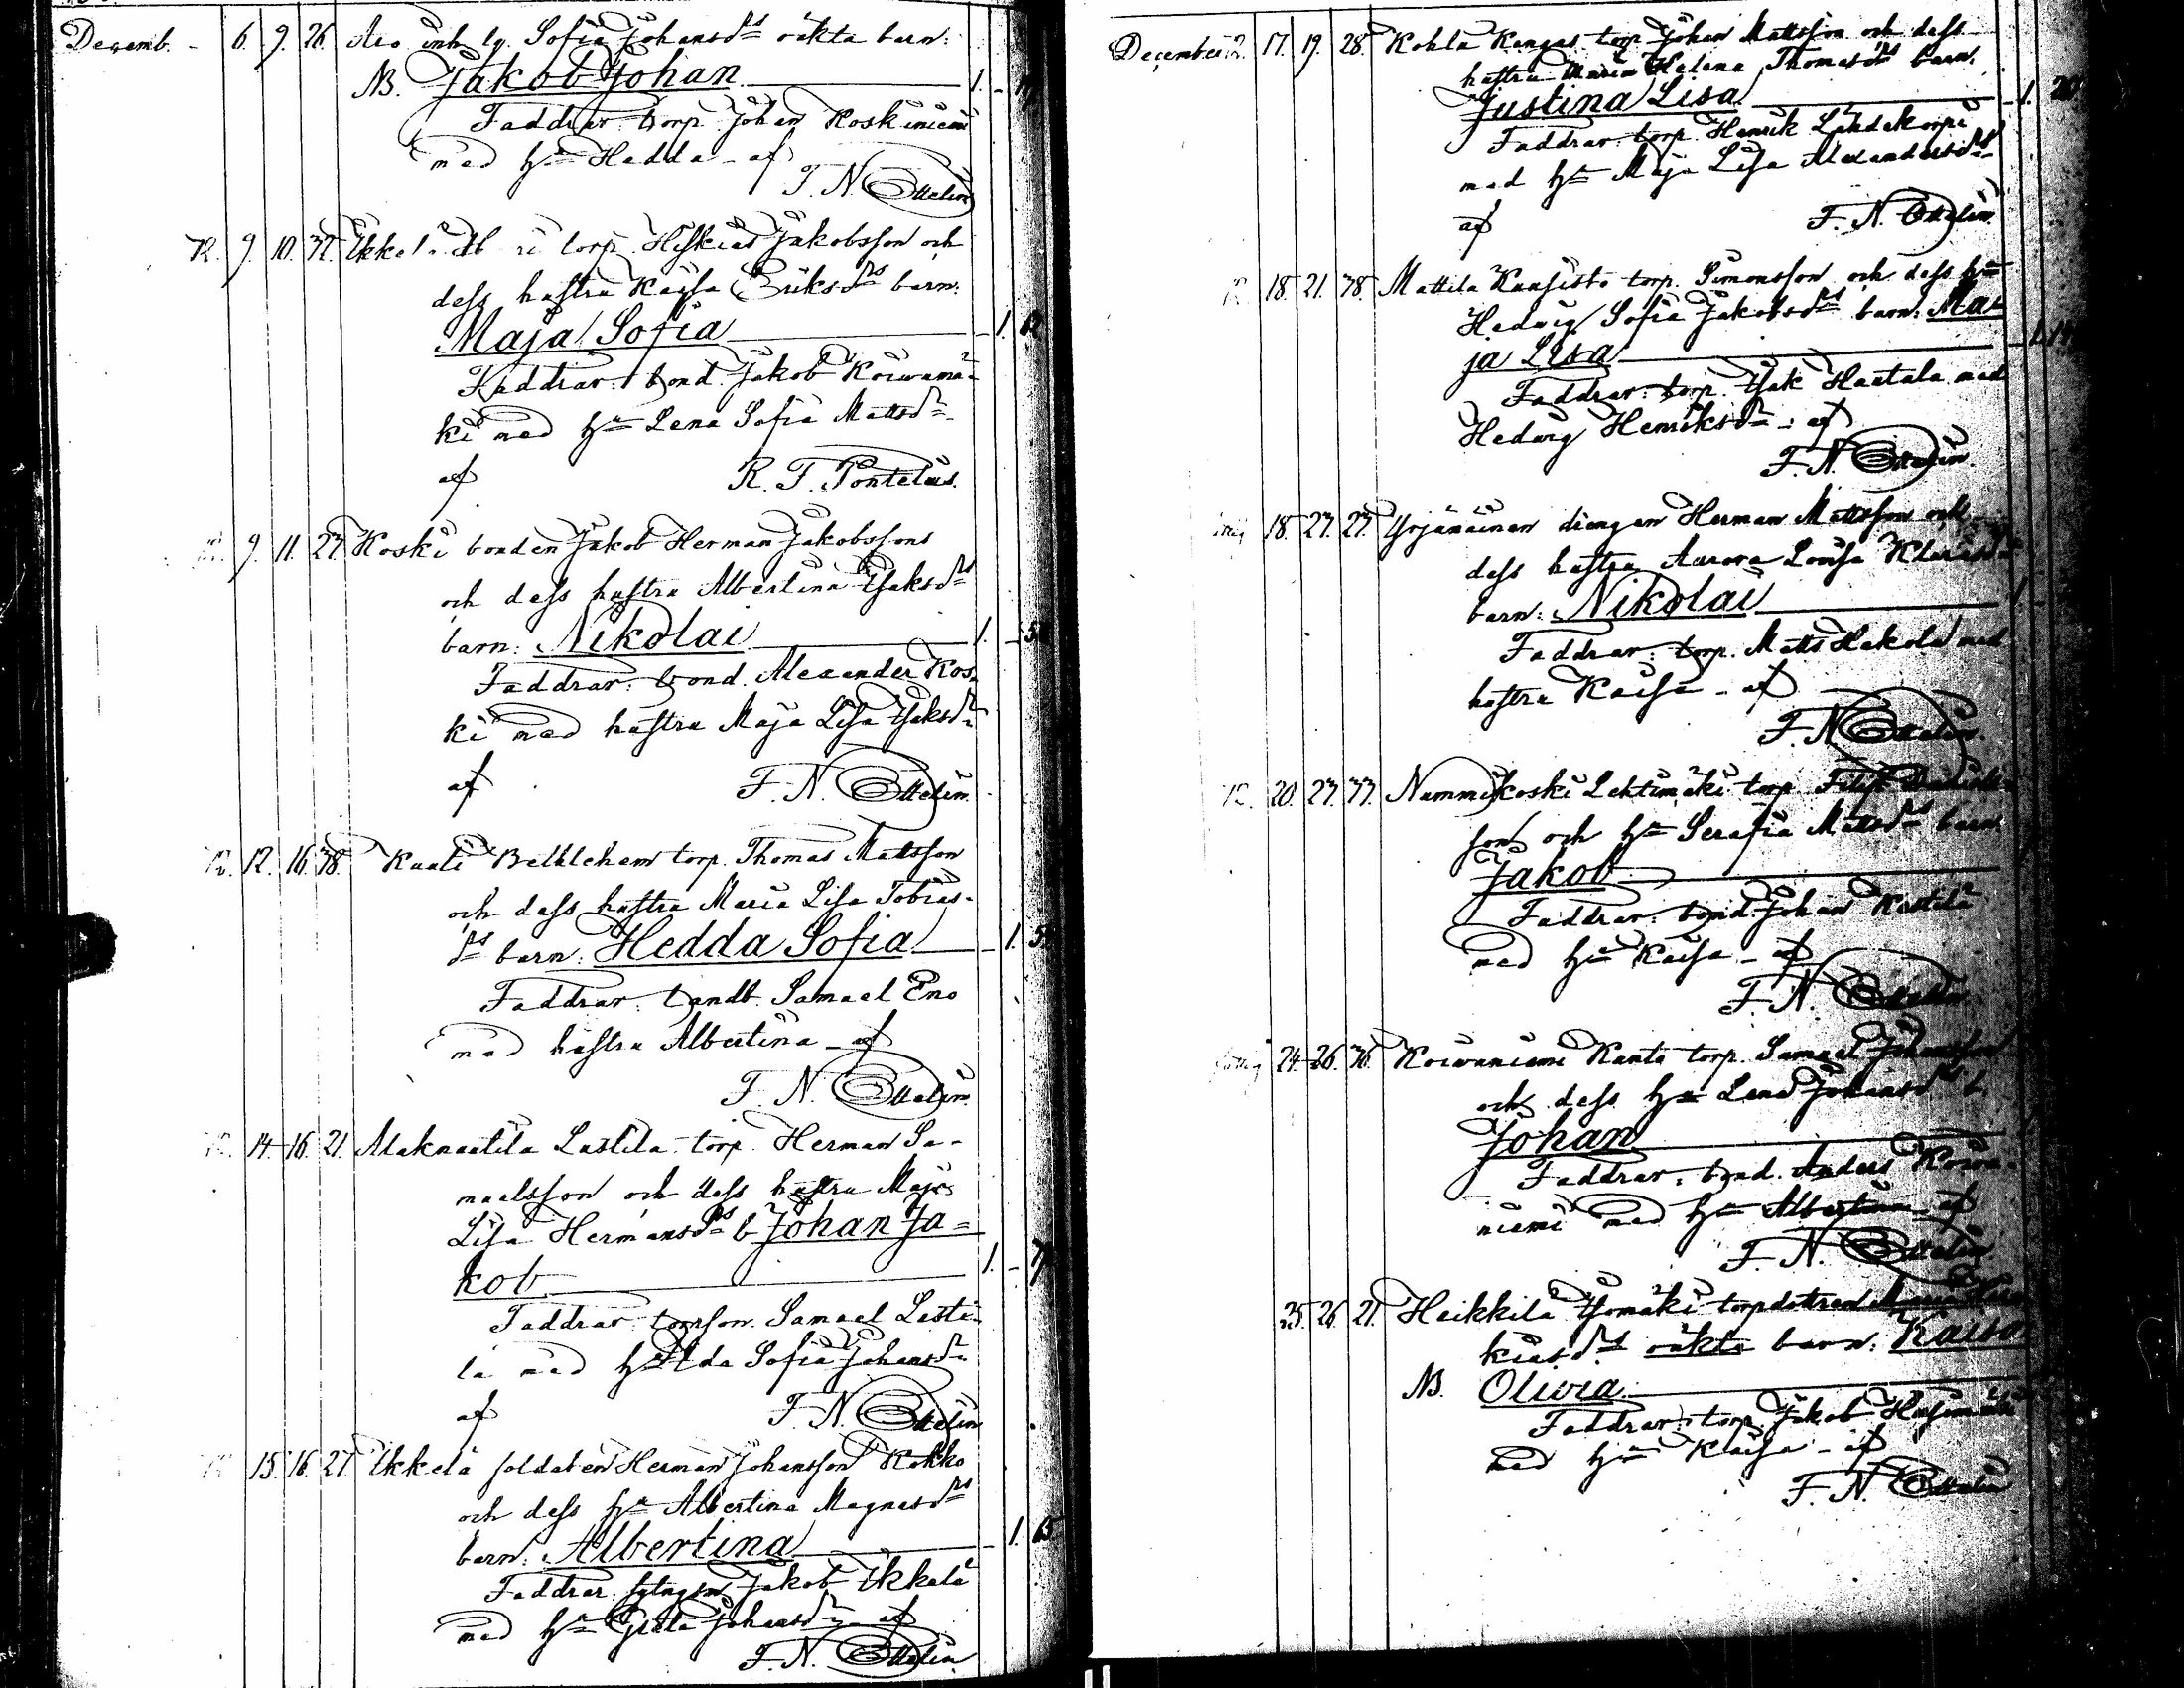 Decemb. - 6. 9. 26. Aro inh. lg. Sofia Johansdrs oäkta barn:
NB. Jakob Johan 1. -
Faddrar: torp. Johan Koskiniemi
med hu Hedda - af
F. N. Ottelin
12. 9. 10. 37. Ikkel torp. Hiskias Jakobsson och
dess hustru Kaisa Eriksdrs barn:
Maja Sofia - 1.
Faddrar: bond. Jakob Koiwumä-
ki med hu Lena Sofia Mattsdr
af R. F. Pontelius.
9. 11. 27. Koski bonden Jakob Herman Jakobssons
och dess hustru Albertina Isaksdrs
barn: Nikolai 1. -
Faddrar: bond. Alexander Kos-
ki med hustru Maja Lisa Isaksdr
af F. N. Ottelin.
12. 12. 16. 38. Kuuti Bethlehem torp. Thomas Mattsson
och dess hustru Maria Lisa Tobias-
drs barn: Hedda Sofia - 1.
Faddrar: landb. Samuel Eno
med hustru Albertina - af
F. N. Ottelin.
14. 16. 21. Alaknaatila Lastila torp. Herman Sa-
muelsson och dess hustru Maja
Lisa Hermansdrs b. Johan Ja-
kob 1. -
Faddrar: torpson. Samuel Lasti-
la med hu Ida Sofia Johansdr
af F. N. Ottelin
15. 16. 27. Ikkelä soldaten Herman Johansson Kokko
och dess hu Albertina Magnusdrs
barn: Albertina - 1. 65
Faddrar: Jakob Ikkelä
med hu Greta Johansdr - af
F. N. Ottelin.
December 12. 17. 19. 28. Kohla Kangas torp. Johan Mattsson och dess
hustru Maria Helena Thomasdrs barn:
Justina Lisa - 1.
Faddrar: torp. Henrik Lähdekorpi
med hu Maja Lisa Alexandersdr
af F. N. Ottelin.
12. 18. 21. 38. Mattila Kuusisto torp. Simonsson och dess hu
Hedwig Sofia Jakobsdrs barn: Ma-
ja Lisa
Faddrar: torp. Isak Hautala med
Hedwig Henriksdr - af
F. N. Ottelin.
18. 27. 27. Yrjänäinen drengen Herman Mattsson och
dess hustru Aurora Lovisa
barn: Nikolai
Faddrar: torp. Matts Hakola med
hustru Kaisa - af
F. N. Ottelin.
12. 20. 27. 37. Nummikoski Lehtimäki torp. Filip
son och hu Serafia Mattsdrs barn
Jakob
Faddrar: bond. Johan Kestilä
med hu Kaisa - af
F. N. Ottelin
24. 26. 36. Koivuniemi Kanto torp. Samuel Johansson
och dess hu Lena Johansdrs b.
Johan
Faddrar: bond. Anders Koivu-
niemi med hu Albertina - af
F. N. Ottelin
25. 26. 21. Heikkilä Isomäki torpdottren
kiasdrs oäkta barn: Kaisa
NB. Olivia
Faddrar: torp. Jakob
med hu Kaisa - af
F. N. Ottelin